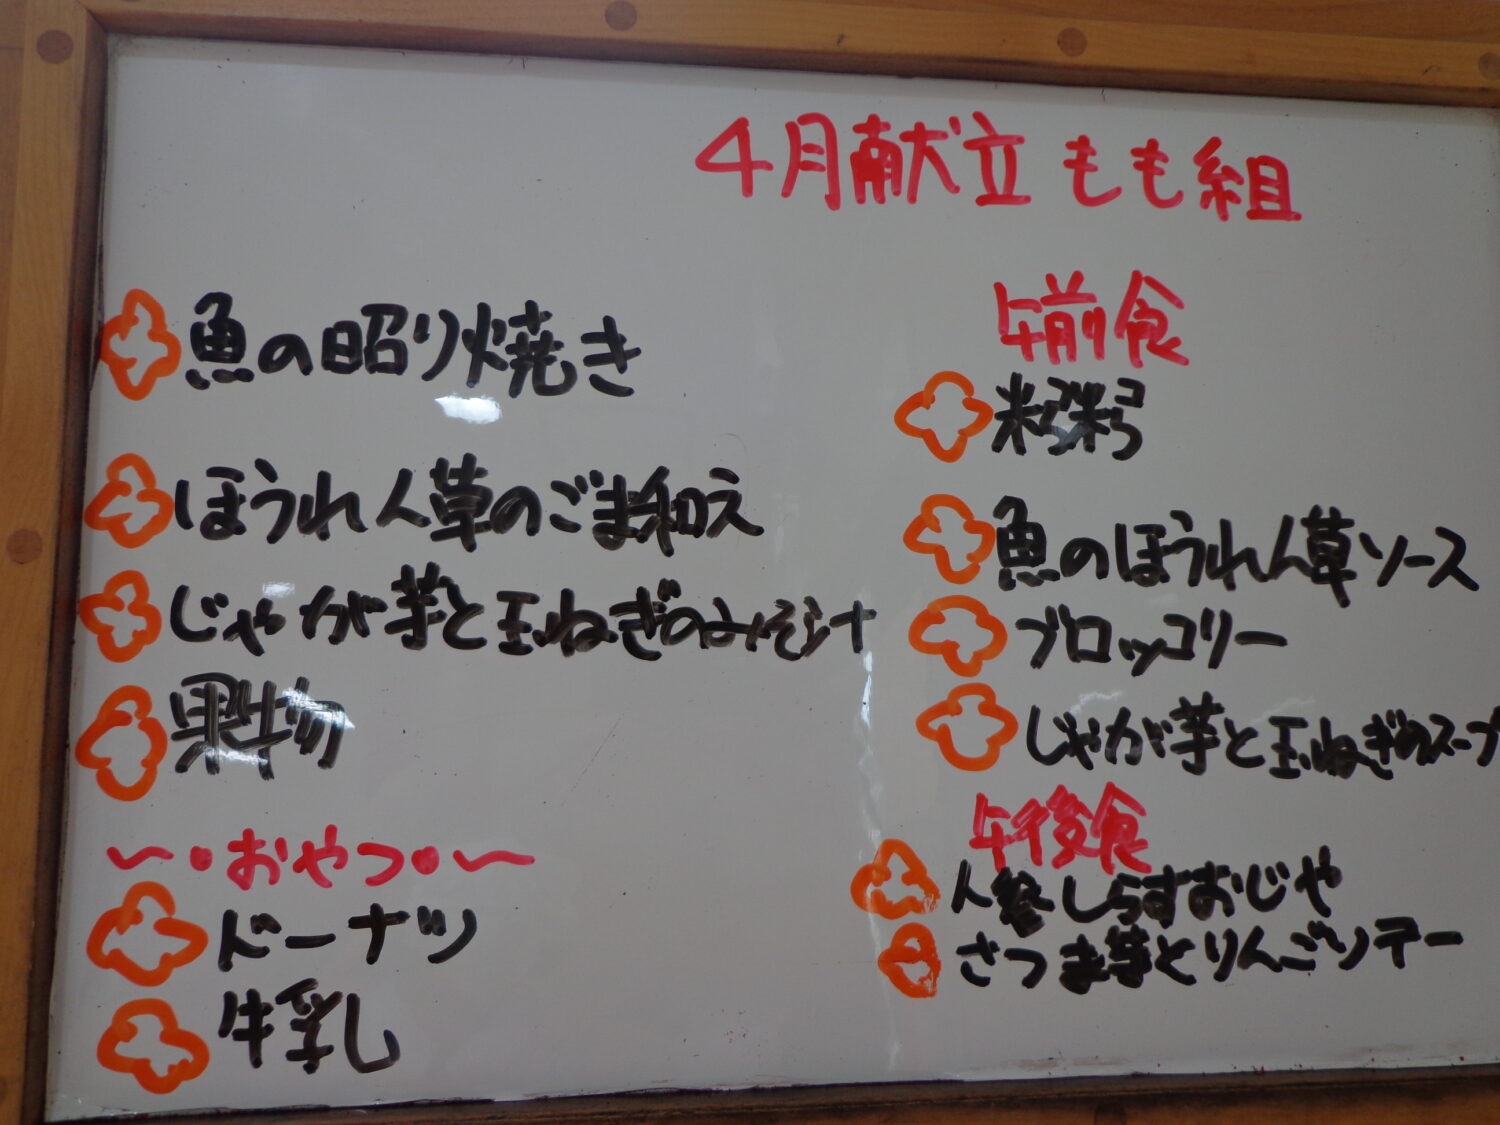 4月献立 もも組
魚の昭り焼き
ほうれん草のごま和え
じゃが芋と玉ねぎのみそ汁
果物
〜・おやつ・〜
ドーナツ
牛乳
午前食
魚のほうれん草ソース
ブロッコリー
じゃが芋と玉ねぎのスープ
午後食
人参しらすおじや
さつま芋とりんごソテー